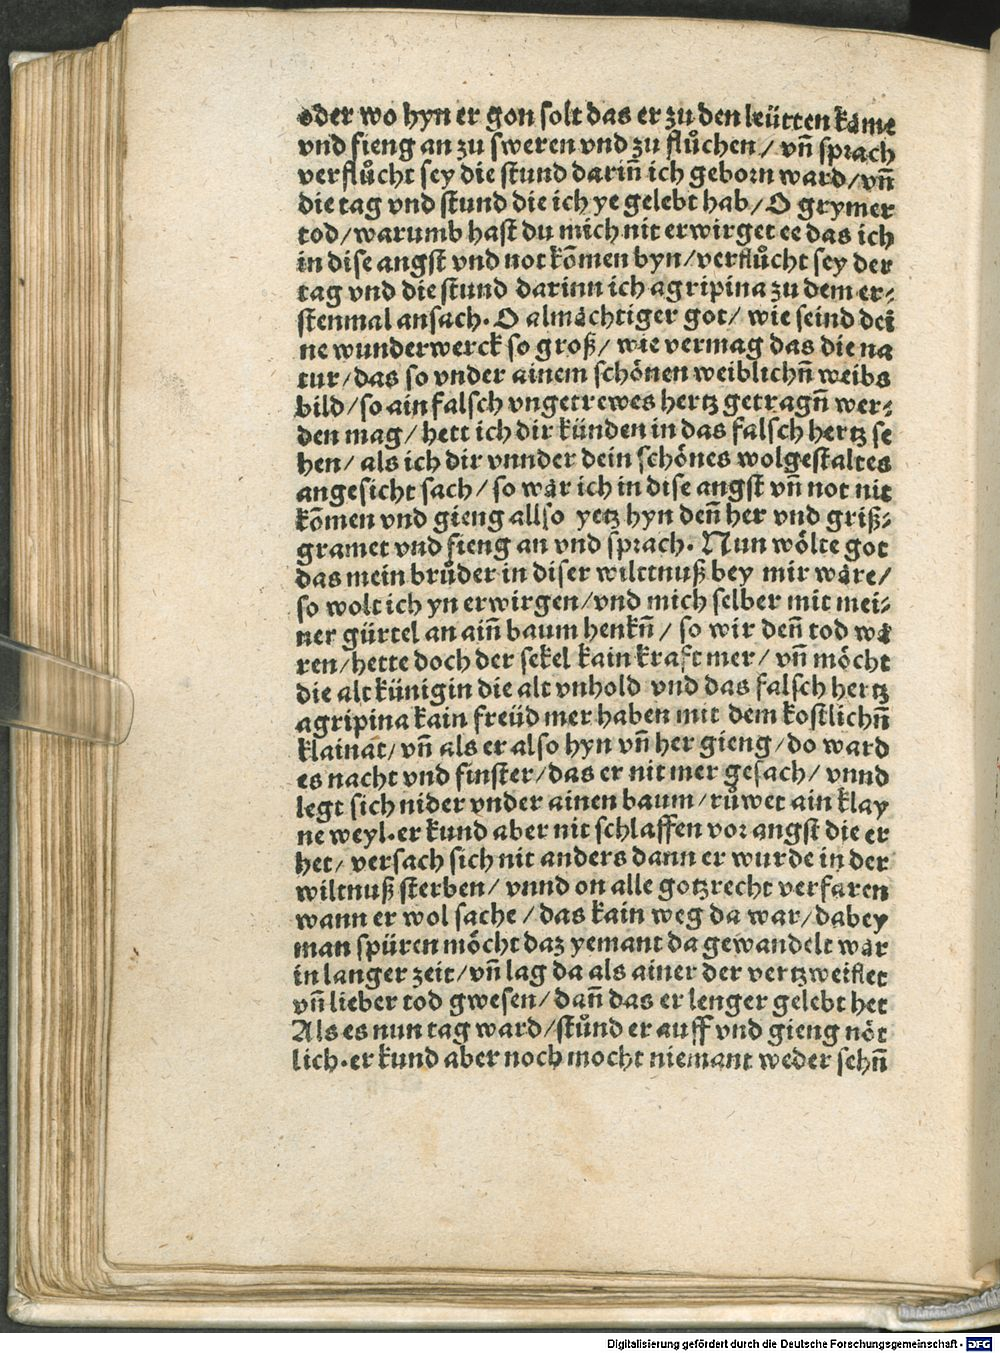 oder wo hyn er gon solt das er zu den leütten kåme
vnd fieng an zu sweren vnd zu flůchen/ vñ sprach
verflůcht sey die stund dariñ ich geborn ward/vñ
die tag vnd stund die ich ye gelebt hab/ O grymer
tod/warumb hast du mich nit erwirget ee das ich
in dise angst vnd not kõmen byn/verflůcht sey der
tag vnd die stund darinn ich agripina zu dem er⸗
stenmal ansach. O almåchtiger got/ wie seind dei
ne wunderwerck so groß/ wie vermag das die na
tur/das so vnder ainem schönen weiblichñ weibs
bild/so ain falsch vngetrewes hertz getragñ wer⸗
den mag/ hett ich dir künden in das falsch hertz se
hen/ als ich dir vnnder dein schönes wolgestaltes
angesicht sach/ so wår ich in dise angst vñ not nit
kõmen vnd gieng allso yetz hyn deñ her vnd griß⸗
gramet vnd fieng an vnd sprach. Nun wölte got
das mein brůder in diser wilttnuß bey mir wåre/
so wolt ich yn erwirgen/vnd mich selber mit mei⸗
ner gürtel an aiñ baum henkñ/ so wir deñ tod wå
ren/hette doch der sekel kain kraft mer/ vñ möcht
die alt künigin die alt vnhold vnd das falsch hertz
agripina kain freüd mer haben mit dem kostlichñ
klainåt/ vñ als er also hyn vñ her gieng/do ward
es nacht vnd finster/das er nit mer gesach/ vnnd
legt sich nider vnder ainen baum/růwet ain klay
ne weyl.er kund aber nit schlaffen vor angst die er
het/ versach sich nit anders dann er wurde in der
wiltnuß sterben/ vnnd on alle gotzrecht verfaren
wann er wol sache/das kain weg da war/dabey
man spüren möcht daz yemant da gewandelt wår
in langer zeit/vñ lag da als ainer der vertzweiflet
vñ lieber tod gwesen/dañ das er lenger gelebt het
Als es nun tag ward/stůnd er auff vnd gieng nöt
lich.er kund aber noch mocht niemant weder sehñ
Digitalisierung gefördert durch die Deutsche Forschungsgemeinschaft - DFG